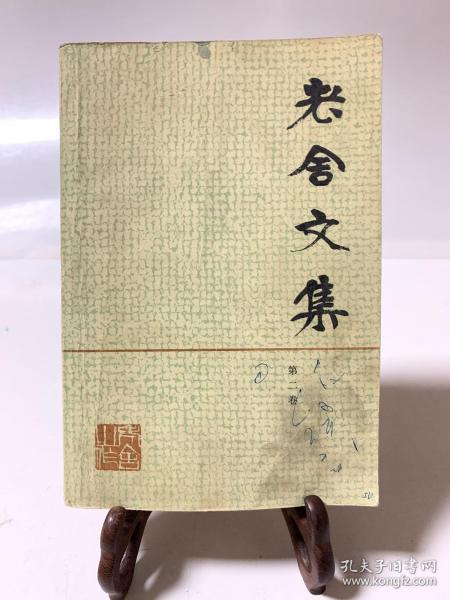 老舍文集
第二卷
孔夫子旧书网
www.kongfz.com